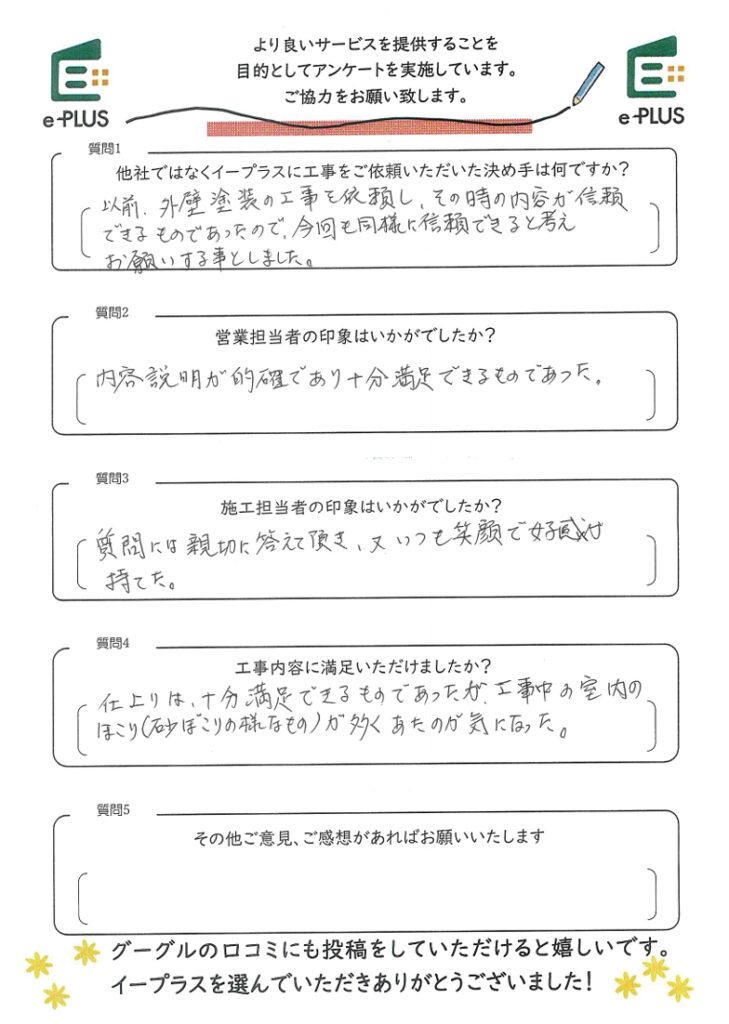 より良いサービスを提供することを
目的としてアンケートを実施しています。
ご協力をお願い致します。
e-PLUS
e-PLUS
質問1
他社ではなくイープラスに工事をご依頼いただいた決め手は何ですか?
以前、外壁塗装の工事を依頼し、その時の内容が信頼
できるものであったので、今回も同様に信頼できると考え
お願いする事としました。
質問2
営業担当者の印象はいかがでしたか?
内容説明が的確であり十分満足できるものであった。
質問3
施工担当者の印象はいかがでしたか?
質問には親切に答えて頂き、又いつも笑顔で好感が
持てた。
質問4
工事内容に満足いただけましたか?
仕上りは、十分満足できるものであったが、工事中の室内の
ほこり(砂ぼこりの様なもの)が多くあたのが気になった。
質問5
その他ご意見、ご感想があればお願いいたします
グーグルの口コミにも投稿をしていただけると嬉しいです。
イープラスを選んでいただきありがとうございました!